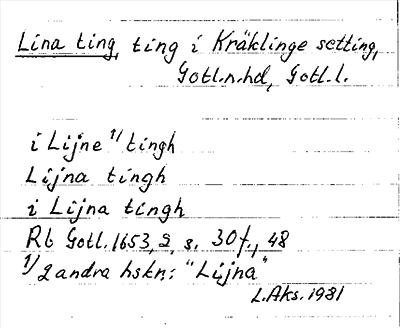 Lina ting, ting i Kräklinge setting,
Gotl.n.hd, Gotl.l.
i Lijne 1/ tingh
Lijna tingh
i Lijna tingh
Rb Gotl. 1653, 2, s. 30f., 48
1/ 2 andra hskn: "Lijna"
L.Aks. 1981